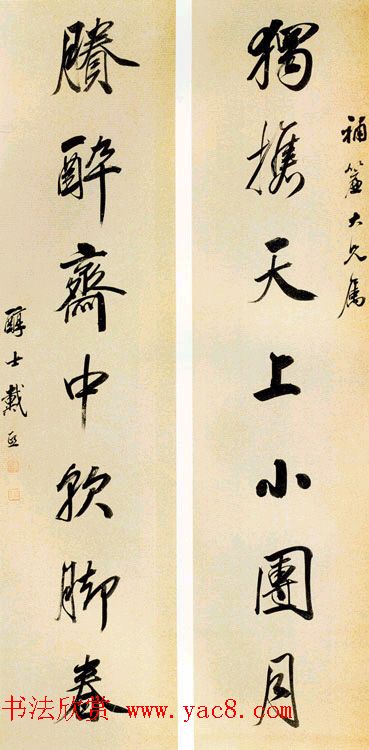 補大兄屬
獨攜天上小團月
賸醉齋中軟脚春
醇士戴熙
书法欣赏 www.yac8.com